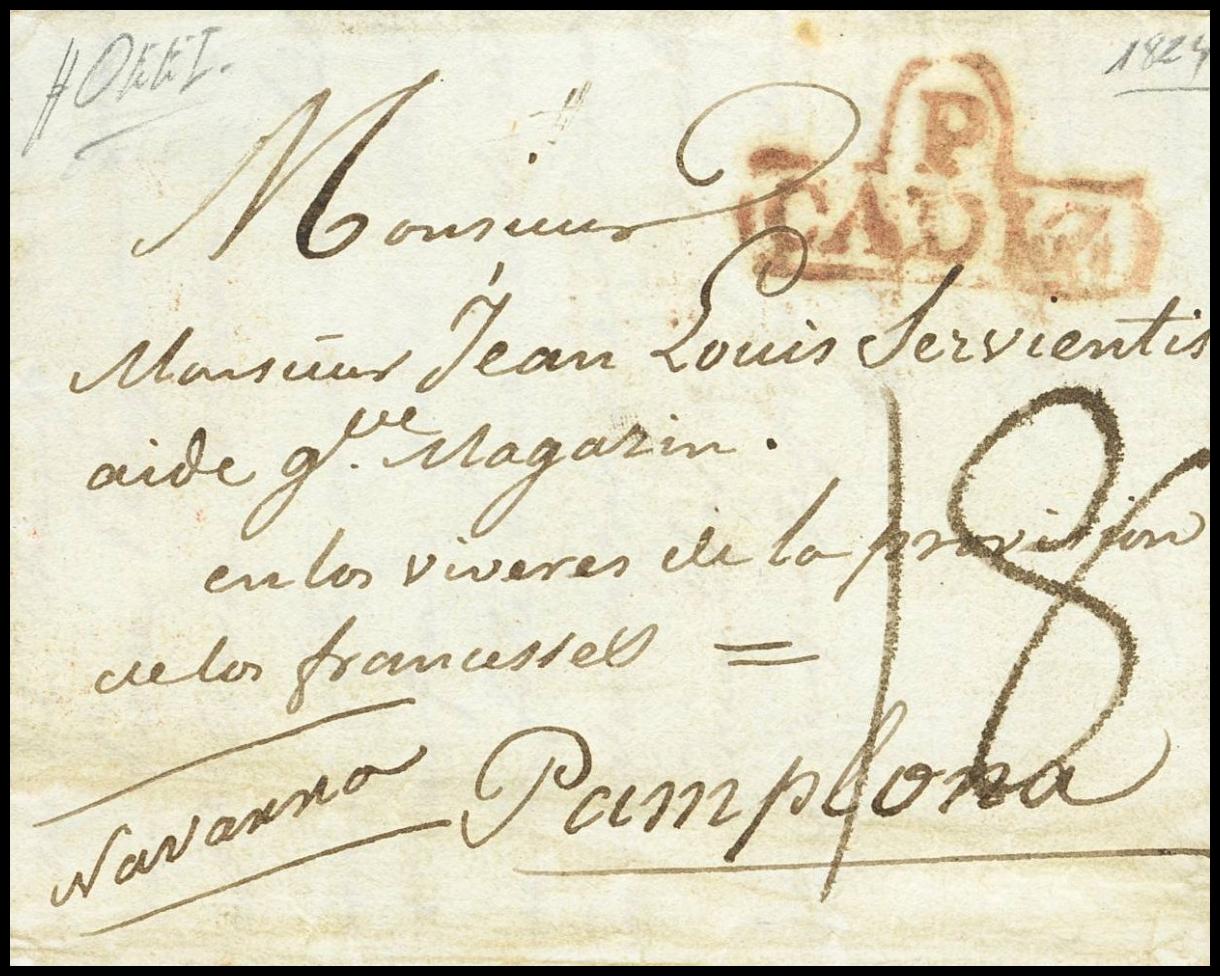 1824
P
CADIZ
Monsieur
Monsieur Jean Louis Servientis
aide g.ve Magazin.
en los viveres de la provision
de los francesses =
18
Navarra Pamplona